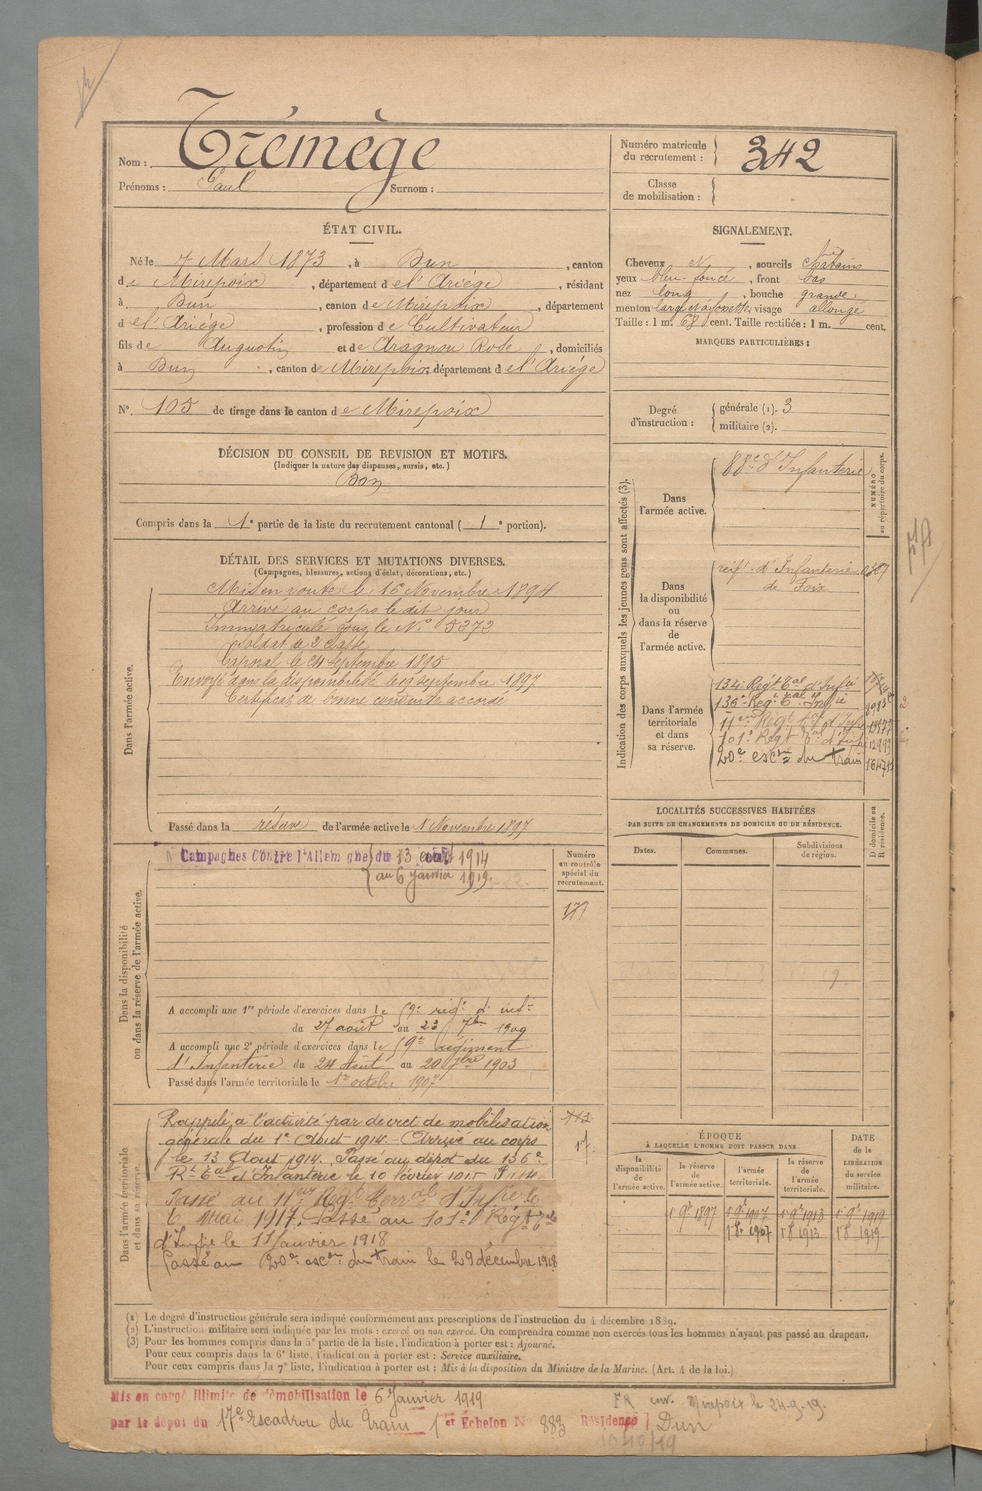 Nom : Trémège
Prénoms : Paul Surnom :
Numéro matricule du recrutement : 342
Classe de mobilisation :
ÉTAT CIVIL.
Né le 7 Mars 1873, à Dun, canton
de Mirepoix, département de l'Ariège, résidant
à Dun, canton de Mirepoix, département
de l'Ariège, profession de Cultivateur
fils de Augustin et de Aragnou Rose, domiciliés
à Dun, canton de Mirepoix, département de l'Ariège
N° 105 de tirage dans le canton de Mirepoix
DÉCISION DU CONSEIL DE REVISION ET MOTIFS.
(Indiquer la nature des dispenses, sursis, etc.)
Bon
Compris dans la 1e partie de la liste du recrutement cantonal (1e portion).
SIGNALEMENT.
Cheveux N, sourcils Chatains
yeux bleu foncé, front bas
nez long, bouche grande
menton large et à fossette, visage allongé
Taille : 1 m. 67 cent. Taille rectifiée : 1 m. cent.
MARQUES PARTICULIÈRES :
Degré d'instruction : générale (1). 3
militaire (2).
DÉTAIL DES SERVICES ET MUTATIONS DIVERSES.
(Campagnes, blessures, actions d'éclat, décorations, etc.)
Dans l'armée active.
Mis en route le 16 Novembre 1894
Arrivé au corps le dit jour
Immatriculé sous le N° 5373
Soldat de 2 classe
Caporal le 24 septembre 1895
Envoyé dans la disponibilité le 19 septembre 1897
Certificat de bonne conduite accordé
Passé dans la réserve de l'armée active le 1 Novembre 1897
Indication des corps auxquels les jeunes gens sont affectés (3).
NUMÉRO au répertoire du corps.
Dans l'armée active.
88e d'Infanterie
Dans la disponibilité ou dans la réserve de l'armée active.
d'Infanterie
de Foix
Dans l'armée territoriale et dans sa réserve.
134e Régt Tal d'Infie
136e Régt Tal d'Infie
11e Régt Tal d'Infie
101e Régt Tal d'Infie
20e escon du train
Dans la disponibilité ou dans la réserve de l'armée active.
Campagnes Contre l'Allemagne du 13 août 1914
au 6 Janvier 1919
Numéro au contrôle spécial du recrutement.
A accompli une 1re période d'exercices dans le 59e régt d'infie
du 27 août au 23 7bre
A accompli une 2e période d'exercices dans le 59e régiment
d'Infanterie du 24 Août au 20 7bre 1903
Passé dans l'armée territoriale le 1er octobre 1907
LOCALITÉS SUCCESSIVES HABITÉES
PAR SUITE DE CHANGEMENTS DE DOMICILE OU DE RÉSIDENCE.
Dates. Communes. Subdivisions de région. D domicile ou R résidence.
Dans l'armée territoriale et dans sa réserve.
Rappelé à l'activité par décret de mobilisation
générale du 1er Août 1914. Arrivé au corps
le 13 Août 1914. Passé au dépôt du 136e
Rt Tal d'Infanterie le 10 février 1915
Passé au 11e Régt Terral d'Infie le
6 Mai 1917. Passé au 101e Régt Tal
d'Infie le 11 Janvier 1918
Passé au 20e escon du train le 29 décembre 1918
ÉPOQUE
À LAQUELLE L'HOMME DOIT PASSER DANS
la disponibilité de l'armée active. la réserve de l'armée active. l'armée territoriale. la réserve de l'armée territoriale.
DATE DE LA LIBÉRATION du service militaire.
1 9e 1897 1 9e 1907 1 9e 1913 1 9e 1919
1 8 1907 1 8 1913 1 8 1919
(1) Le degré d'instruction générale sera indiqué conformément aux prescriptions de l'instruction du 4 décembre 1889.
(2) L'instruction militaire sera indiquée par les mots : exercé ou non exercé. On comprendra comme non exercés tous les hommes n'ayant pas passé au drapeau.
(3) Pour les hommes compris dans la 5e partie de la liste, l'indication à porter est : Ajourné.
Pour ceux compris dans la 6e liste, l'indication à porter est : Service auxiliaire.
Pour ceux compris dans la 7e liste, l'indication à porter est : Mis à la disposition du Ministre de la Marine. (Art. 4 de la loi.)
Mis en congé illimité de démobilisation le 6 Janvier 1919
par le dépôt du 17e Escadron du Train 1er Echelon N° 883 Résidence Dun
Mirepoix le 24-9-19
10/10/19